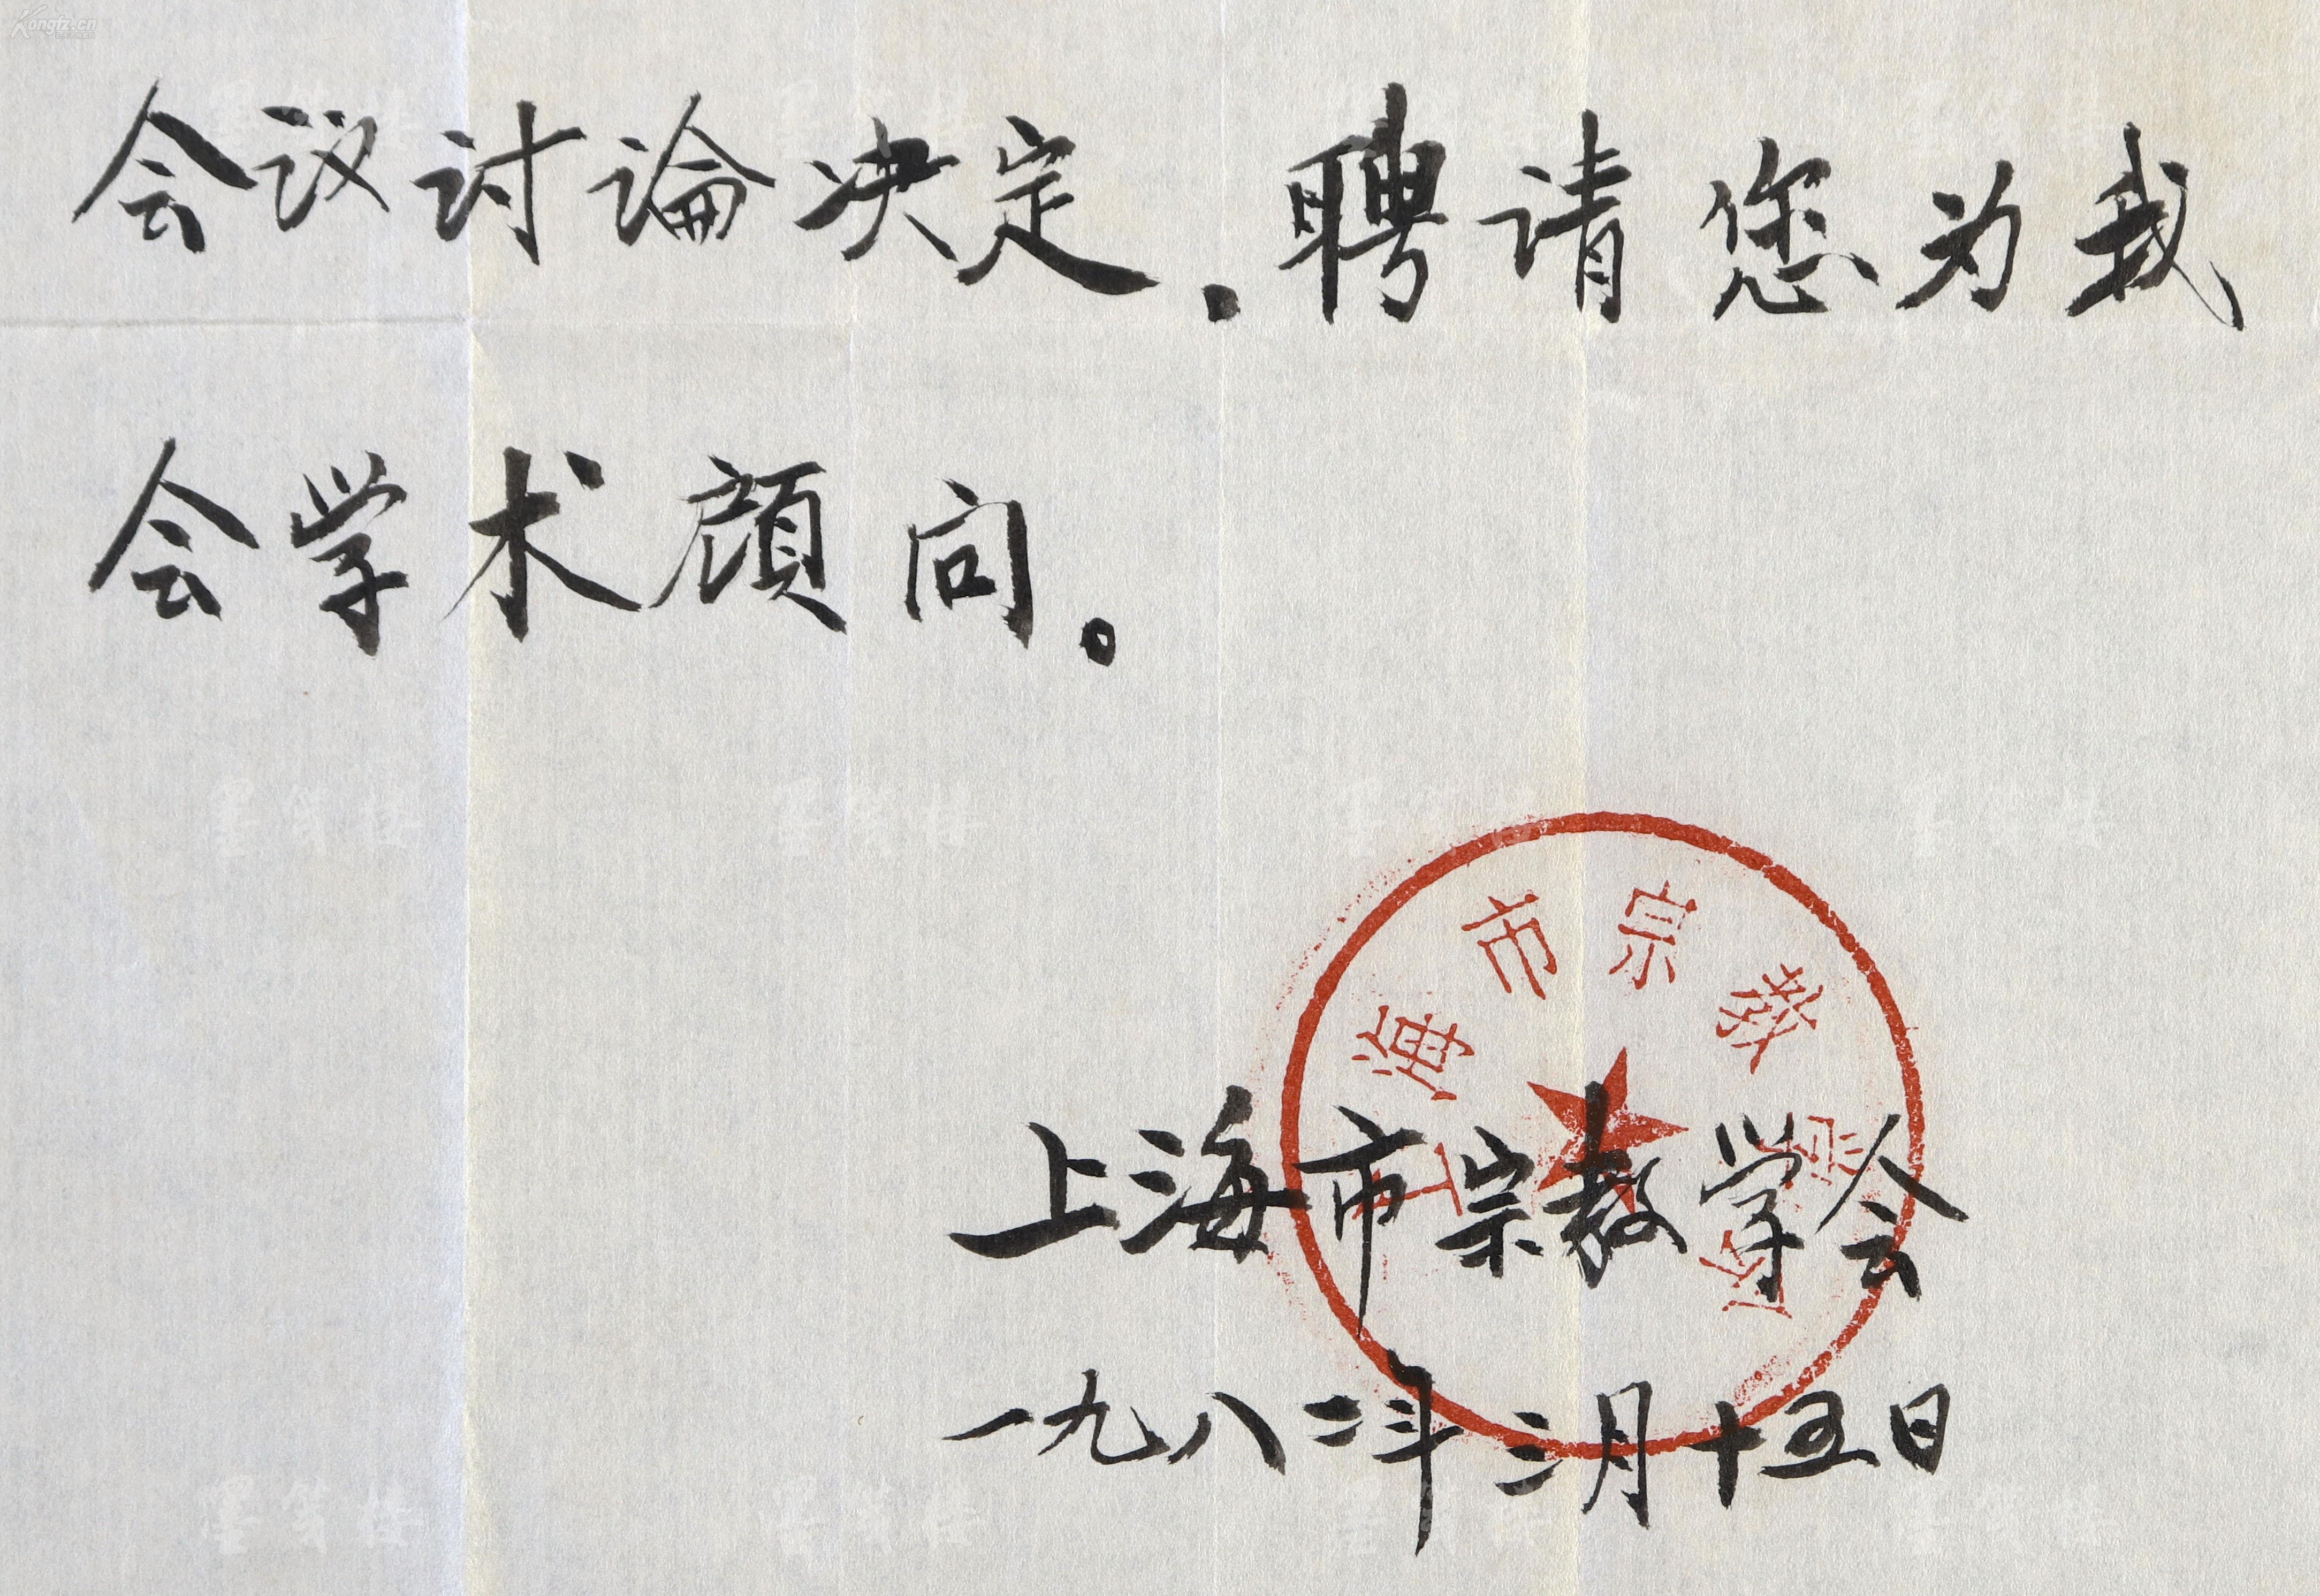 Kongfz.cn
会议讨论决定、聘请您为我
会学术顾问。
上海市宗教学会
上海市宗教学会
一九八二年二月十五日